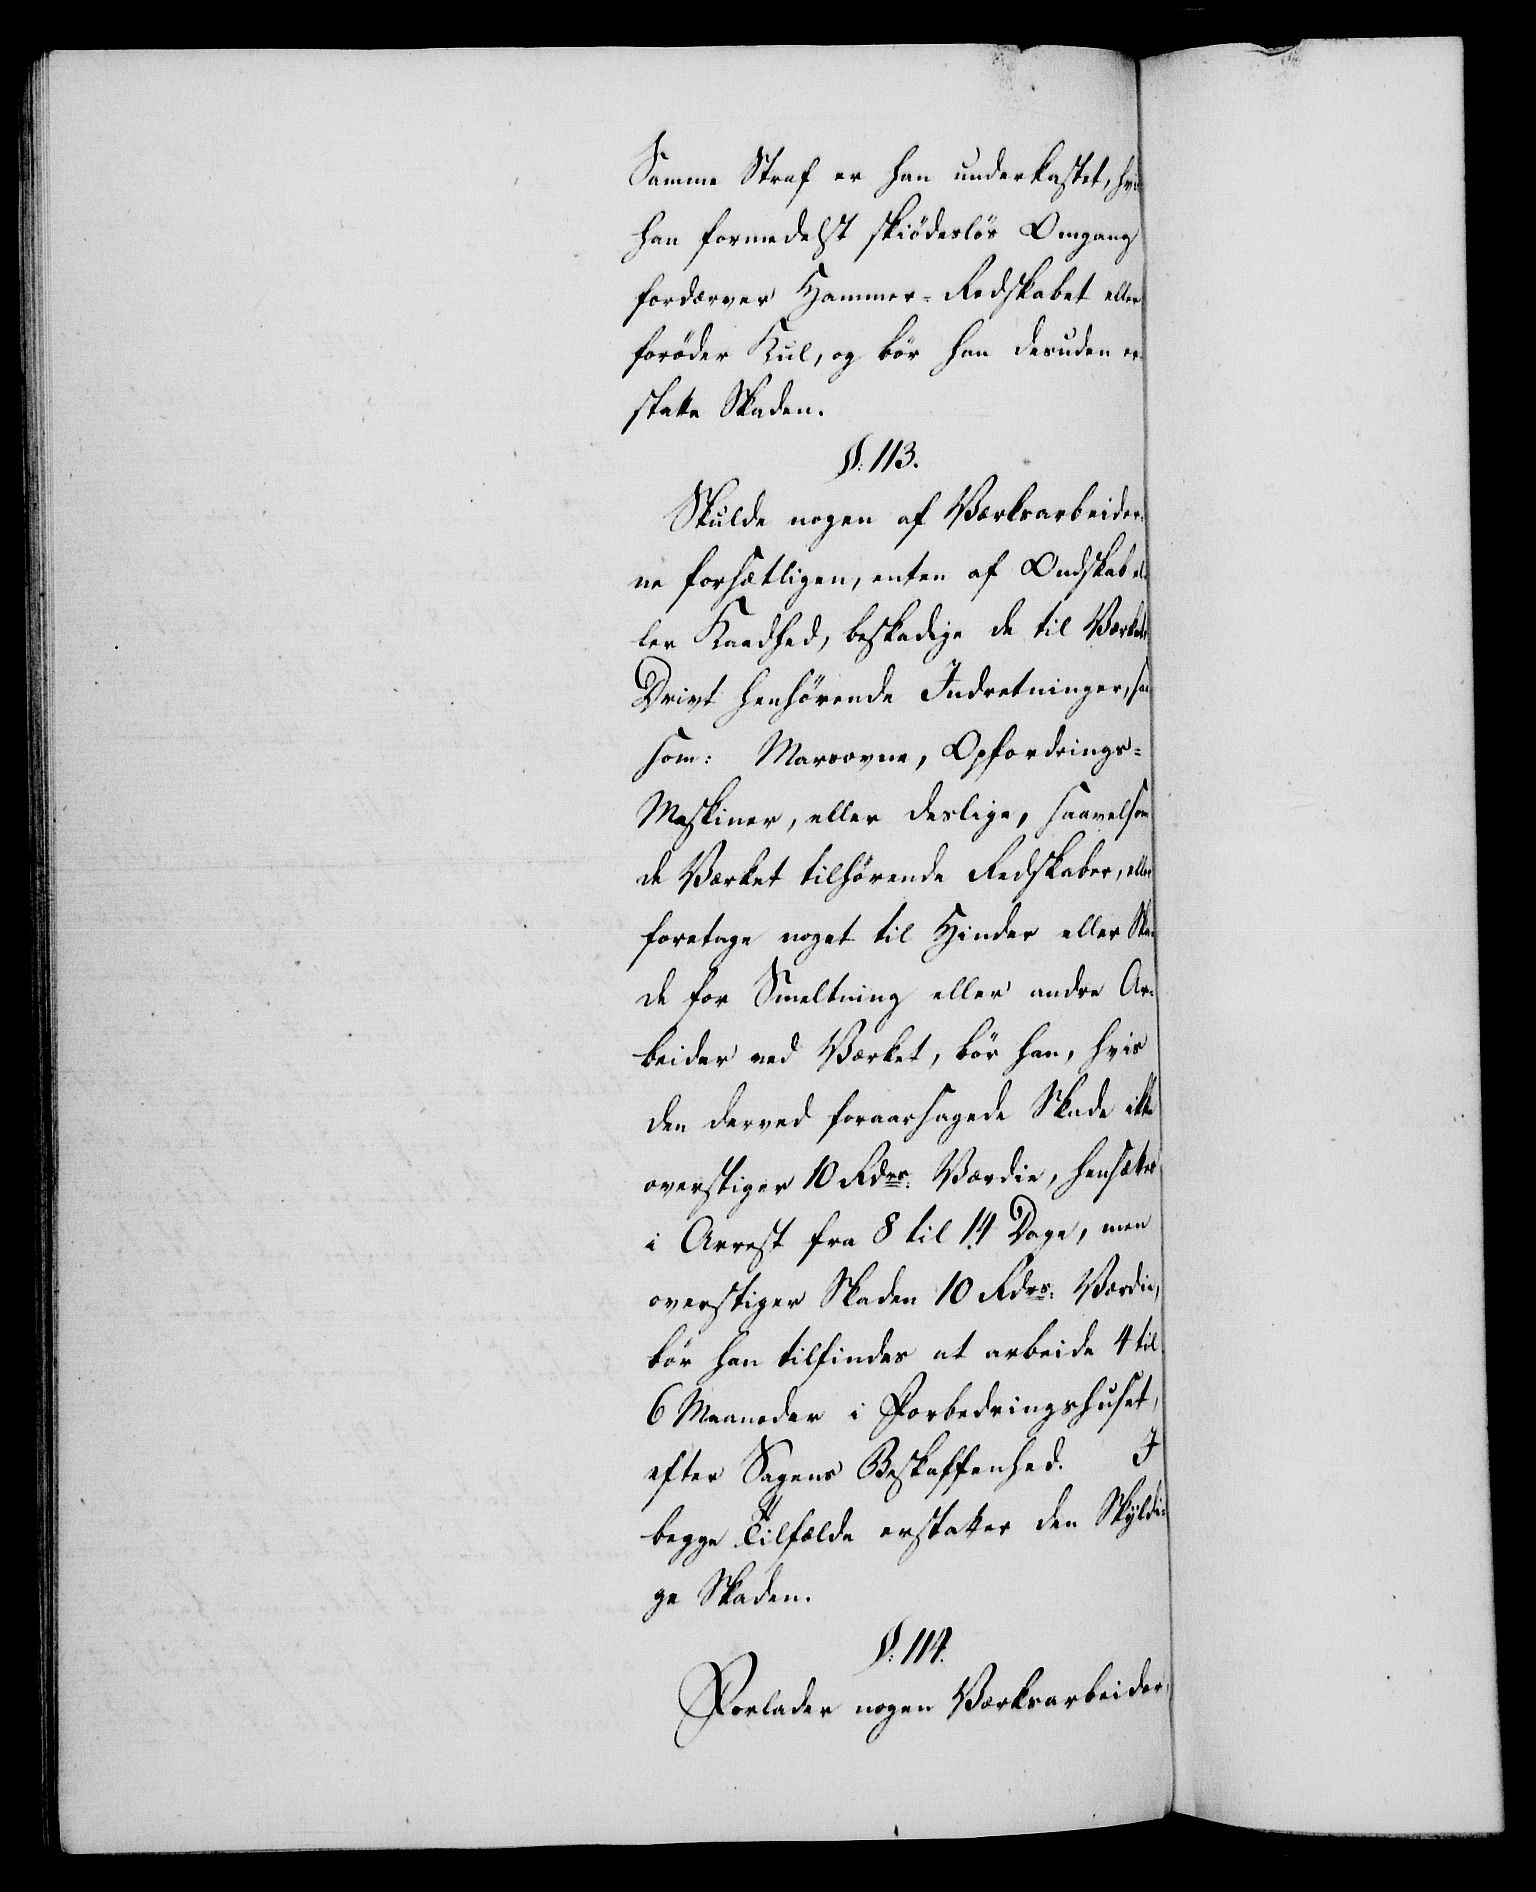 Samme Straf er han underkastet, hvis
han formedelst skiödeslös Omgang
fordærver Hammer-Redskabet eller
foröder Kul, og bör han desuden er-
statte Skaden.
§. 113.
Skulde nogen af Værksarbeider-
ne forsætligen, enten af Ondskab el-
ler Kaadhed, beskadige de til Værkets
Drivt henhörende Indretninger, saa
som: Masovne, Opfordrings-
Maskiner, eller deslige, saavelsom
de Værket tilhörende Redskaber, eller
foretage noget til Hinder eller Ska-
de for Smeltning eller andre Ar-
beider ved Værket, bör han, hvis
den derved foraarsagede Skade ikke
overstiger 10 Rdrs. Værdie, hensættes
i Arrest fra 8 til 14 Dage, men
overstiger Skaden 10 Rdrs. Værdie,
bör han tilfindes at arbeide 4 til
6 Maaneder i Forbedringshuset,
efter Sagens Beskaffenhed. I
begge Tilfælde erstatter den Skyldi-
ge Skaden.
§. 114.
Forlader nogen Værksarbeider,